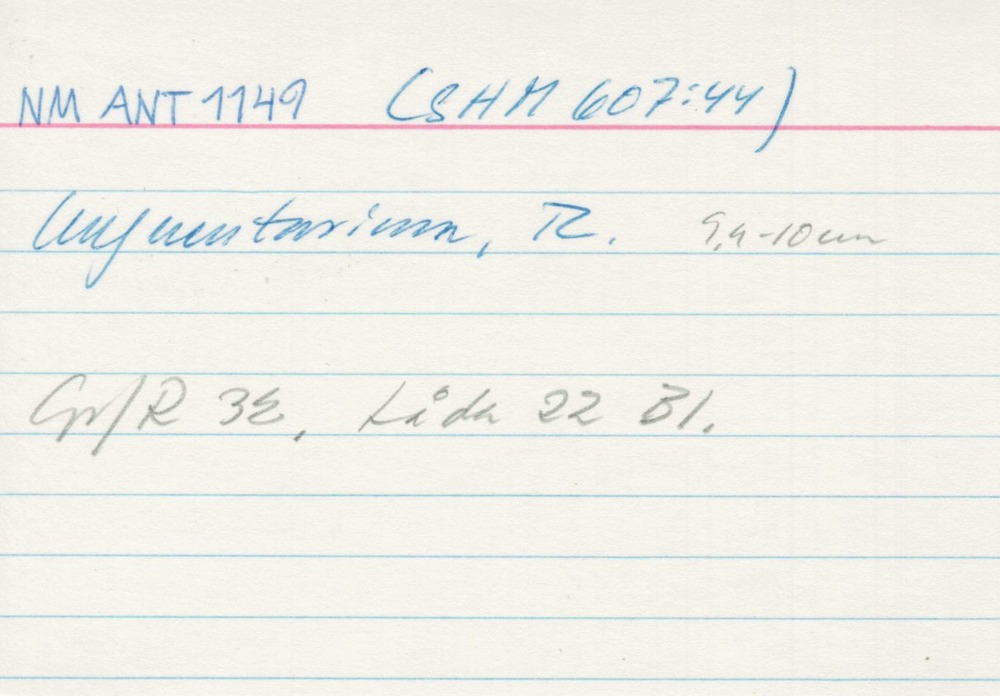 NM ANT 1149 (SHM 607:44)
Unguentarium, R. 9,4-10 cm
Gr/R 3E, Låda 22 B1.